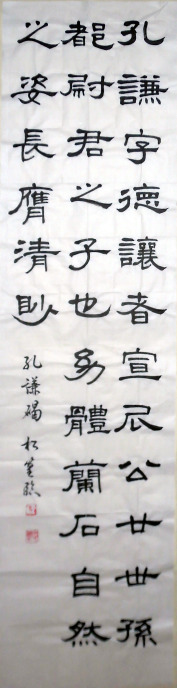 孔謙字德讓者宣尼公廿世孫
都尉君之子也幼體蘭石自然
之姿長膺清眇
孔謙碣 松臨